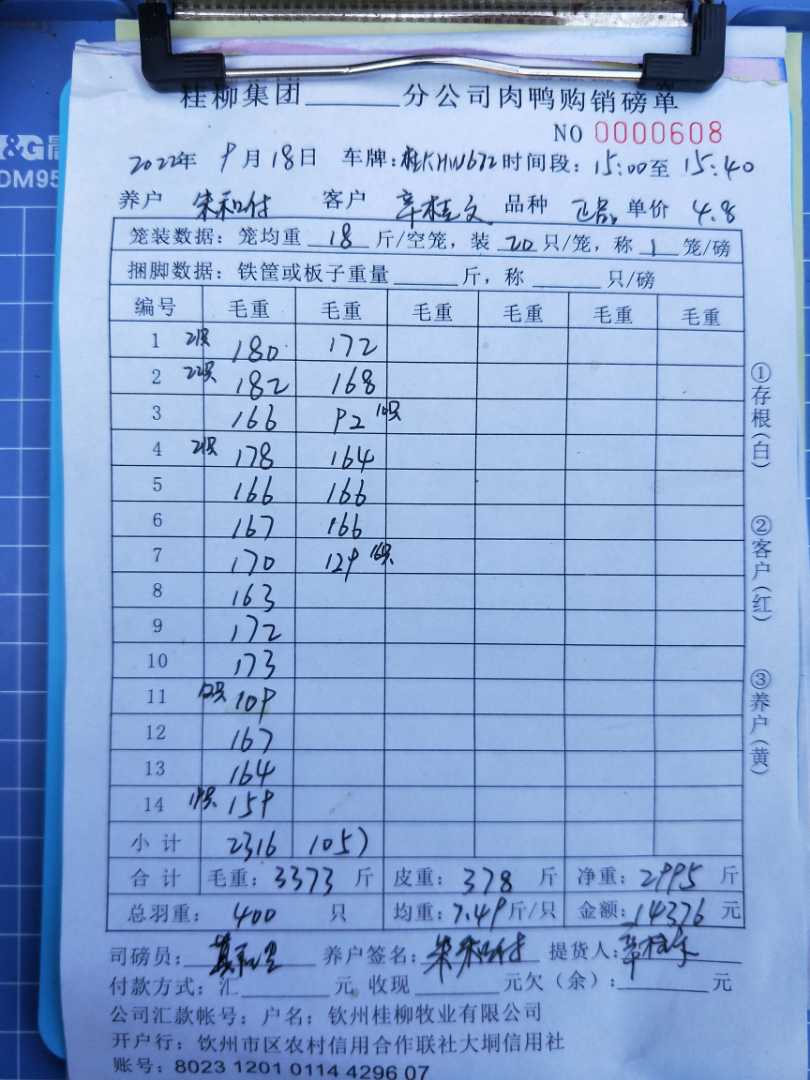 桂柳集团______分公司肉鸭购销磅单
NO 0000608
2022年 9月18日 车牌:桂KHW672 时间段:15:00至 15:40
养户 朱和付 客户 辛桂文 品种 正品 单价 4.8
笼装数据:笼均重 18 斤/空笼,装 20 只/笼,称 1 笼/磅
捆脚数据:铁筐或板子重量______斤,称______只/磅
编号 毛重 毛重 毛重 毛重 毛重 毛重
1 21只 180 172
2 22只 182 168
3 166 92 10只
4 21只 178 164
5 166 166
6 167 166
7 170 129 16只
8 163
9 172
10 173
11 12只 109
12 167
13 164
14 19只 159
小计 2316 1057
合计 毛重:3373 斤 皮重:378 斤 净重:2995 斤
总羽重:400 只 均重:7.49斤/只 金额:14376 元
司磅员: 养户签名:朱和付 提货人:
付款方式:汇______元 收现______元欠(余):______元
公司汇款帐号:户名:钦州桂柳牧业有限公司
开户行:钦州市区农村信用合作联社大垌信用社
账号:8023 1201 0114 4296 07
①存根(白) ②客户(红) ③养户(黄)
&G
DM95